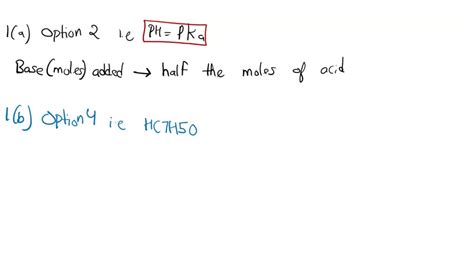 1(a) Option 2 i.e PH = PKa
Base (moles) added → half the moles of acid
1(b) Option 4 i.e HC7H5O